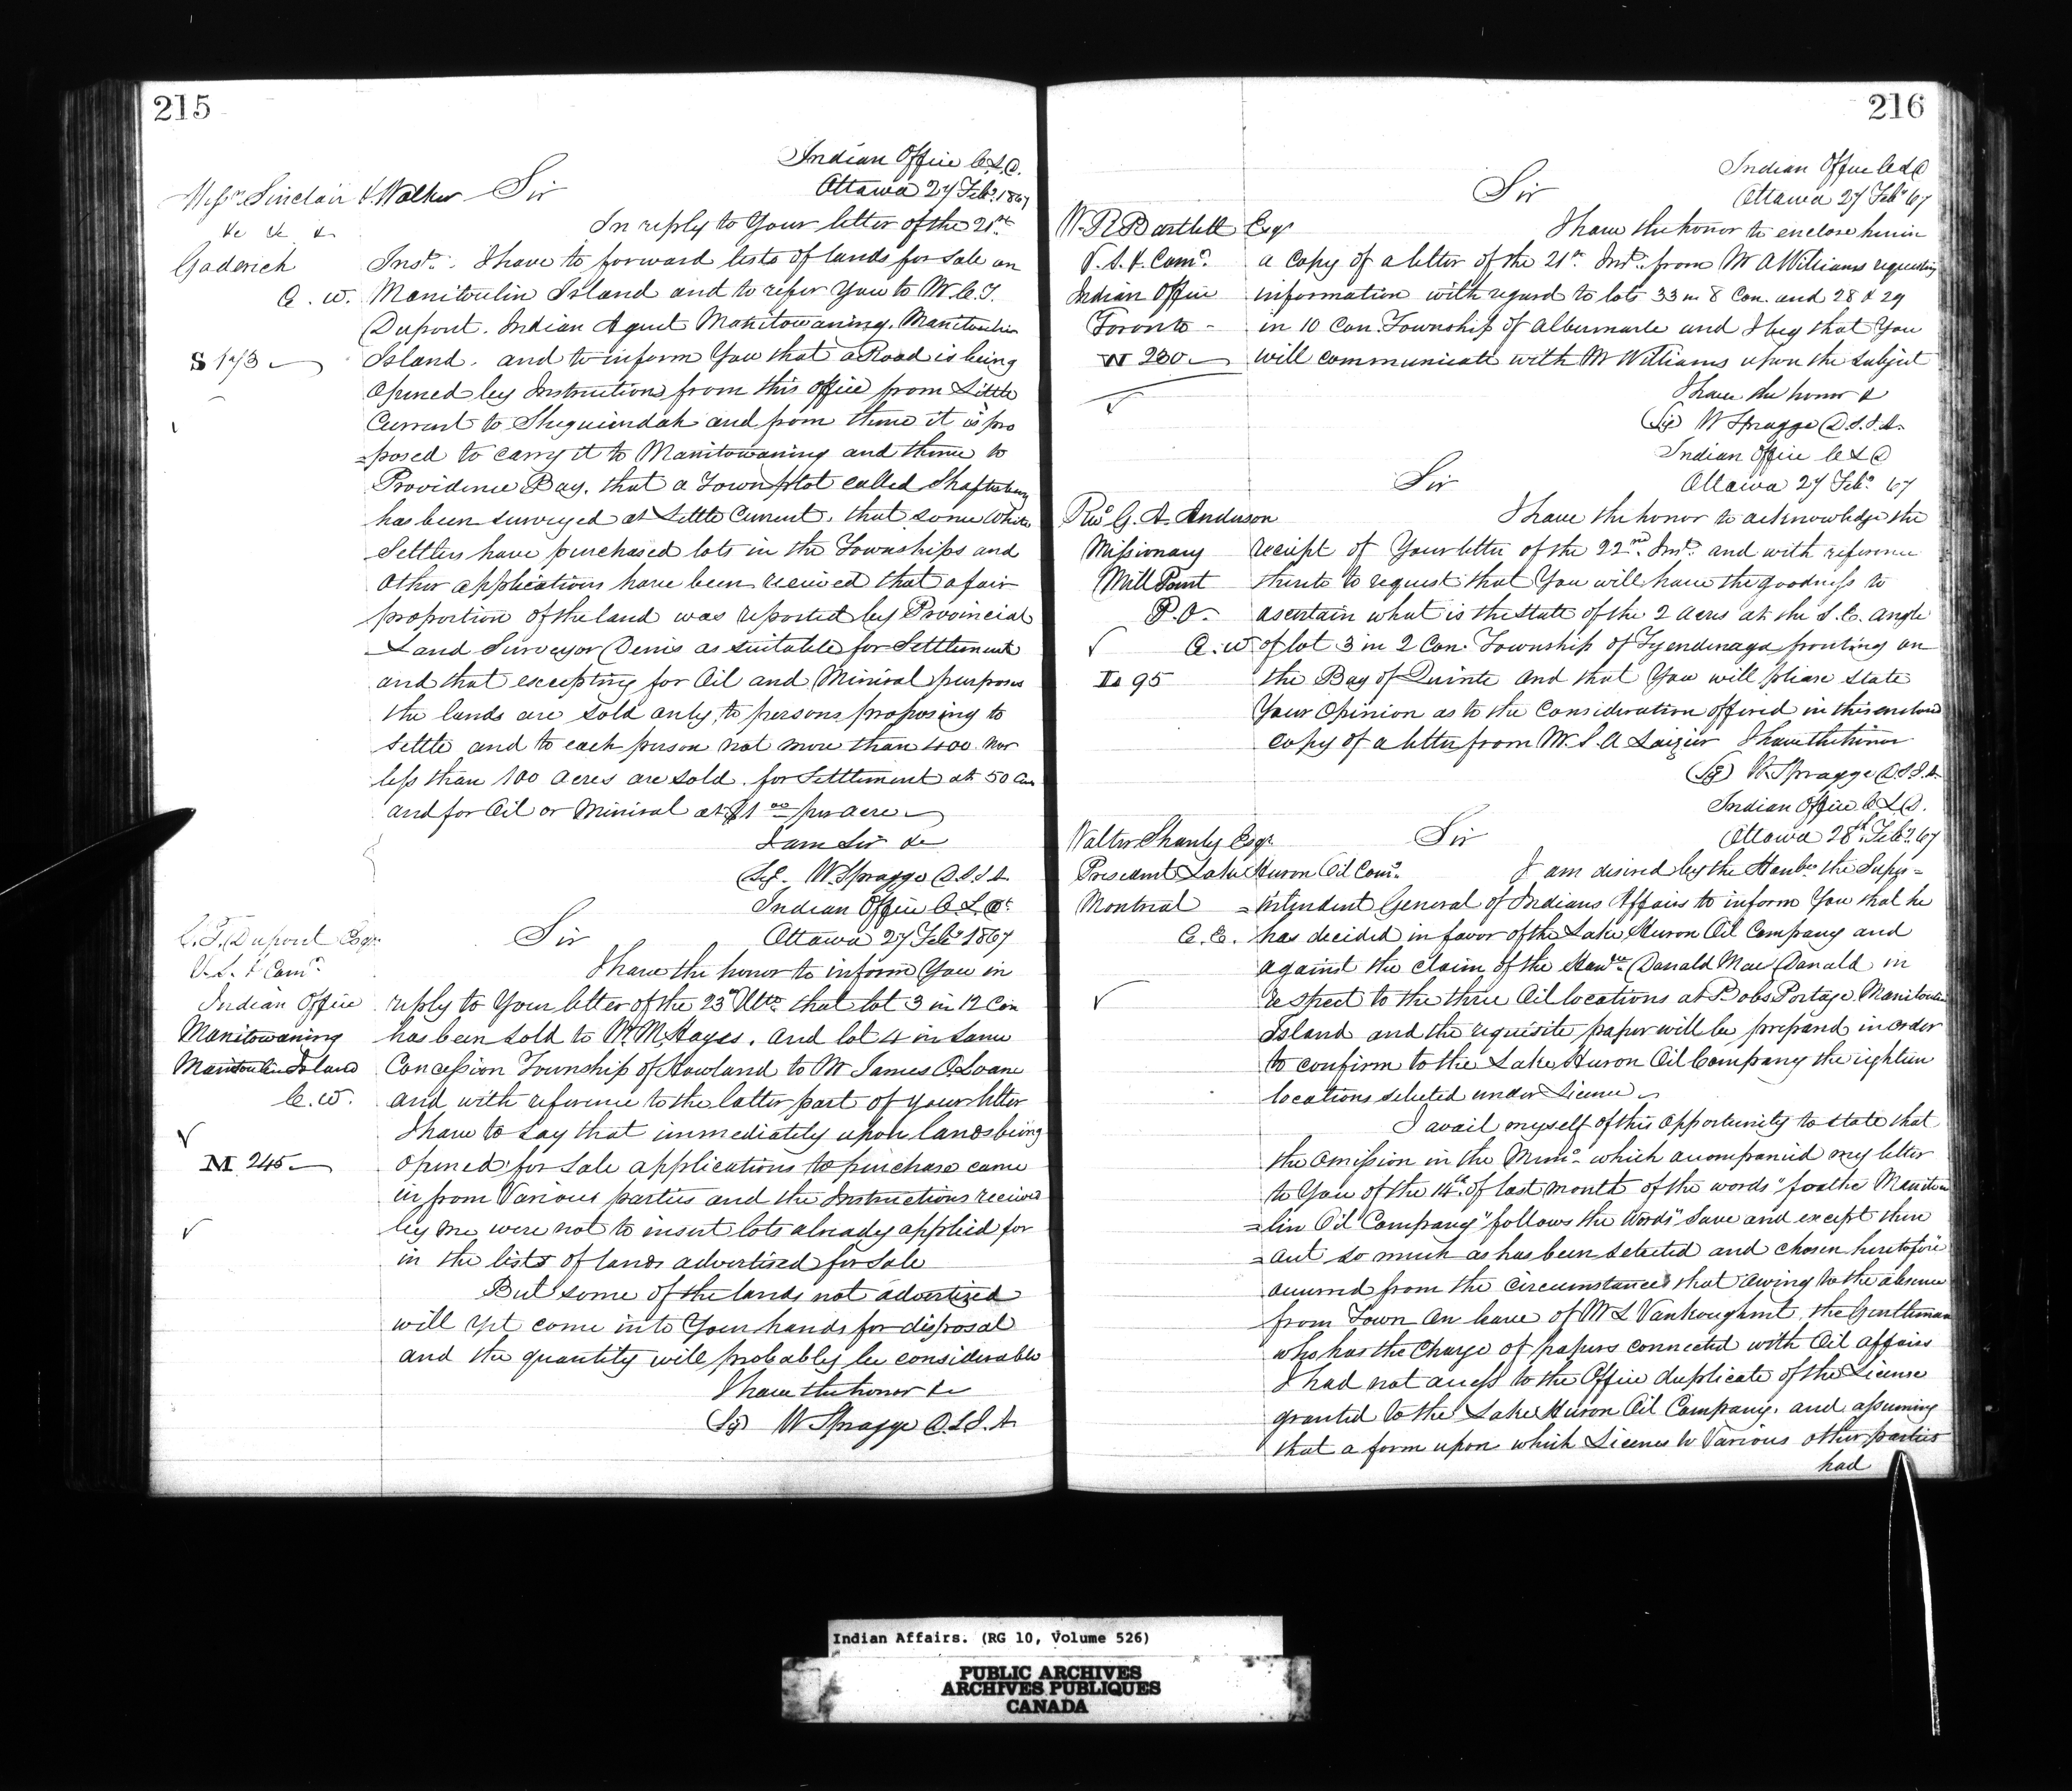 215
Indian Office C.L.D.
Ottawa 27 Feby. 1867
Messrs Sinclair & Walker Sir
&c &c &c
In reply to Your letter of the 21st
Goderich
Inst. I have to forward lists of lands for Sale on
C. W. Manitoulin Island and to refer You to Mr C. T.
Dupont. Indian Agent Manitowaning. Manitoulin
S 173
Island. and to inform You that a Road is being
opened by Instructions from this office from Little
Current to Sheguiendah and from thence it is pro
=posed to carry it to Manitowaning and thence to
Providence Bay. that a Town plot called Shaftesbury
has been surveyed at Little Current. that some White
Settlers have purchased lots in the Townships and
other applications have been received that a fair
proportion of the land was reported by Provincial
Land Surveyor Denis as suitable for Settlement
and that excepting for Oil and Mineral purposes
the lands are sold only to persons proposing to
settle and to each person not more than 400 nor
less than 100 acres are sold. for Settlement at 50 Cts
and for Oil or Mineral at $1 00 per acre
I am Sir &c
Sgd. W. Spragge D.S.I.A.
Indian Office C.L.Dt
C. T. Dupont Esqr. Sir Ottawa 27 Feby 1867
V. S. & Comr.
I have the honor to inform You in
Indian Office reply to Your letter of the 23d Ulto. that lot 3 in 12 Con
Manitowaning has been sold to Mr. M. Hayes. and lot 4 in Same
Manitoulin Island Concession Township of Howland to Mr James O. Loane
C. W. and with reference to the latter part of your letter
I have to Say that immediately upon lands being
M 245 opened for Sale applications to purchase came
in from Various parties and the Instructions received
by me were not to insert lots already applied for
in the lists of lands advertised for Sale
But some of the lands not advertized
will yet come into Your hands for disposal
and the quantity will probably be considerable
I have the honor &c
(Sg) W Spragge D.S.I.A.
216
Indian Office C L D
Sir Ottawa 27 Feby 67
W. R. Bartlett Esqr I have the honor to enclose herein
V. S. & Comr. a Copy of a letter of the 21st Inst. from Mr A Williams requesting
Indian Office information with regard to lots 33 in 8 Con. and 28 & 29
Toronto - in 10 Con. Township of Albermarle and I beg that You
W 230 will communicate with Mr Williams upon the Subject
I have the honor &
(Sg) W Spragge D.S.I.A.
Indian Office C L D
Sir Ottawa 27 Feby 67
Revd G. A. Anderson I have the honor to acknowledge the
Missionary receipt of Your letter of the 22nd Inst. and with reference
Mill Point thereto to request that You will have the goodness to
P.O. ascertain what is the State of the 2 acres at the S. E. angle
C. W of lot 3 in 2 Con. Township of Tyendenaga fronting on
95 the Bay of Quinte and that You will please state
Your Opinion as to the Consideration offered in this enclosed
Copy of a letter from Mr. S. A Laizier I have the honor
(Sg) W. Spragge D.S.I.A.
Indian Office C L D.
Walter Shanly Esqr. Sir Ottawa 28th Feby. 67
President Lake Huron Oil Comy. I am desired by the Honble the Super=
Montreal =intendent General of Indians Affairs to inform You that he
C. E. has decided in favor of the Lake Huron Oil Company and
against the claim of the Honble. Donald Mac Donald in
respect to the three Oil locations at Bobs Portage Manitoulin
Island and the requisite paper will be prepared in order
to confirm to the Lake Huron Oil Company the eighteen
locations selected under License
I avail myself of this Opportunity to state that
the omission in the Memo. which accompanied my letter
to You of the 14th of last Month of the words "for the Manitou
=lin Oil Company" follows the Words "Save and except there
=out so much as has been selected and chosen heretofore"
occurred from the circumstances that owing to the absence
from Town on leave of Mr L Vankoughnet. the Gentleman
who has the Charge of papers connected with Oil affairs
I had not access to the Office duplicate of the License
granted to the Lake Huron Oil Company. and assuming
that a form upon which Licenses to Various other parties
had
Indian Affairs. (RG 10, Volume 526)
PUBLIC ARCHIVES
ARCHIVES PUBLIQUES
CANADA